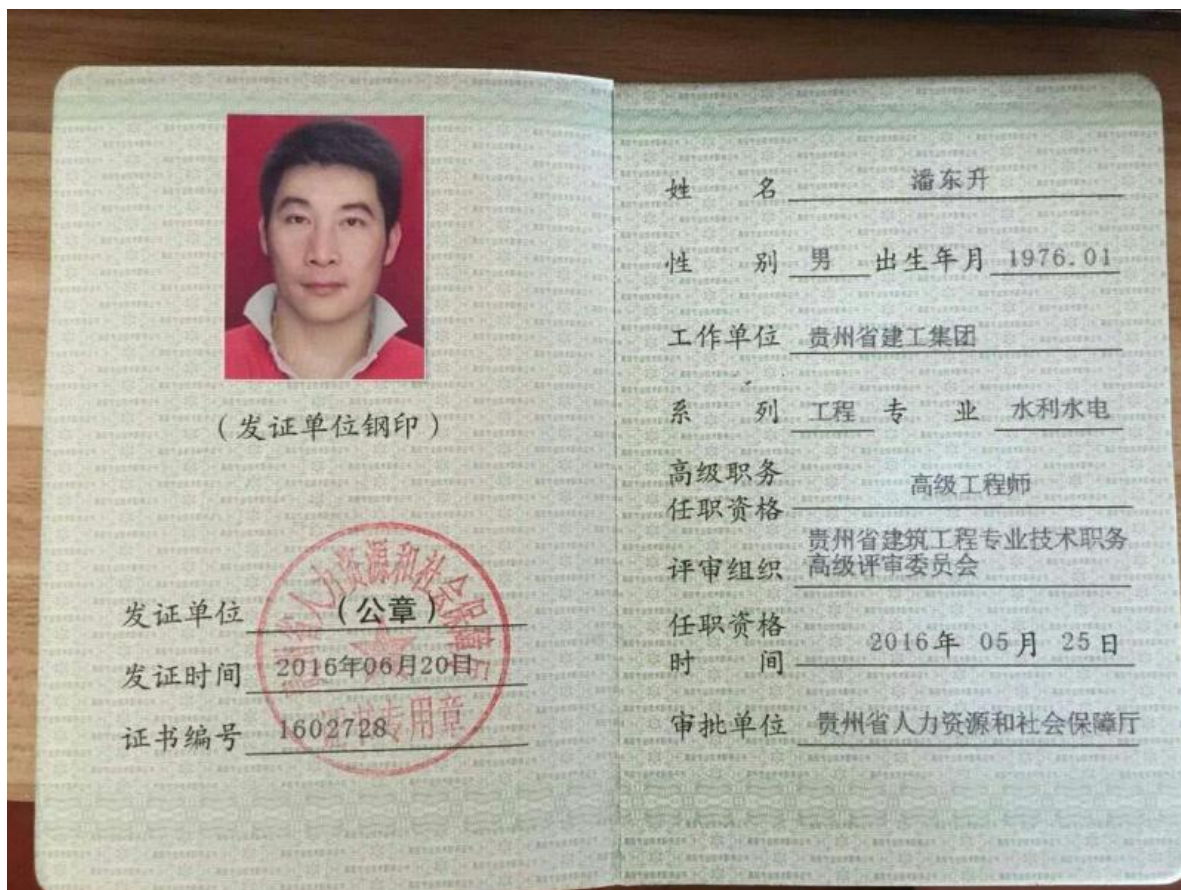 (发证单位钢印)
发证单位 (公章)
发证时间 2016年06月20日
证书编号 1602728
贵州省人力资源和社会保障厅
证书专用章
姓 名 潘东升
性 别 男 出生年月 1976.01
工作单位 贵州省建工集团
系 列 工程 专 业 水利水电
高级职务
任职资格 高级工程师
评审组织 贵州省建筑工程专业技术职务
高级评审委员会
任职资格
时 间 2016年 05月 25日
审批单位 贵州省人力资源和社会保障厅